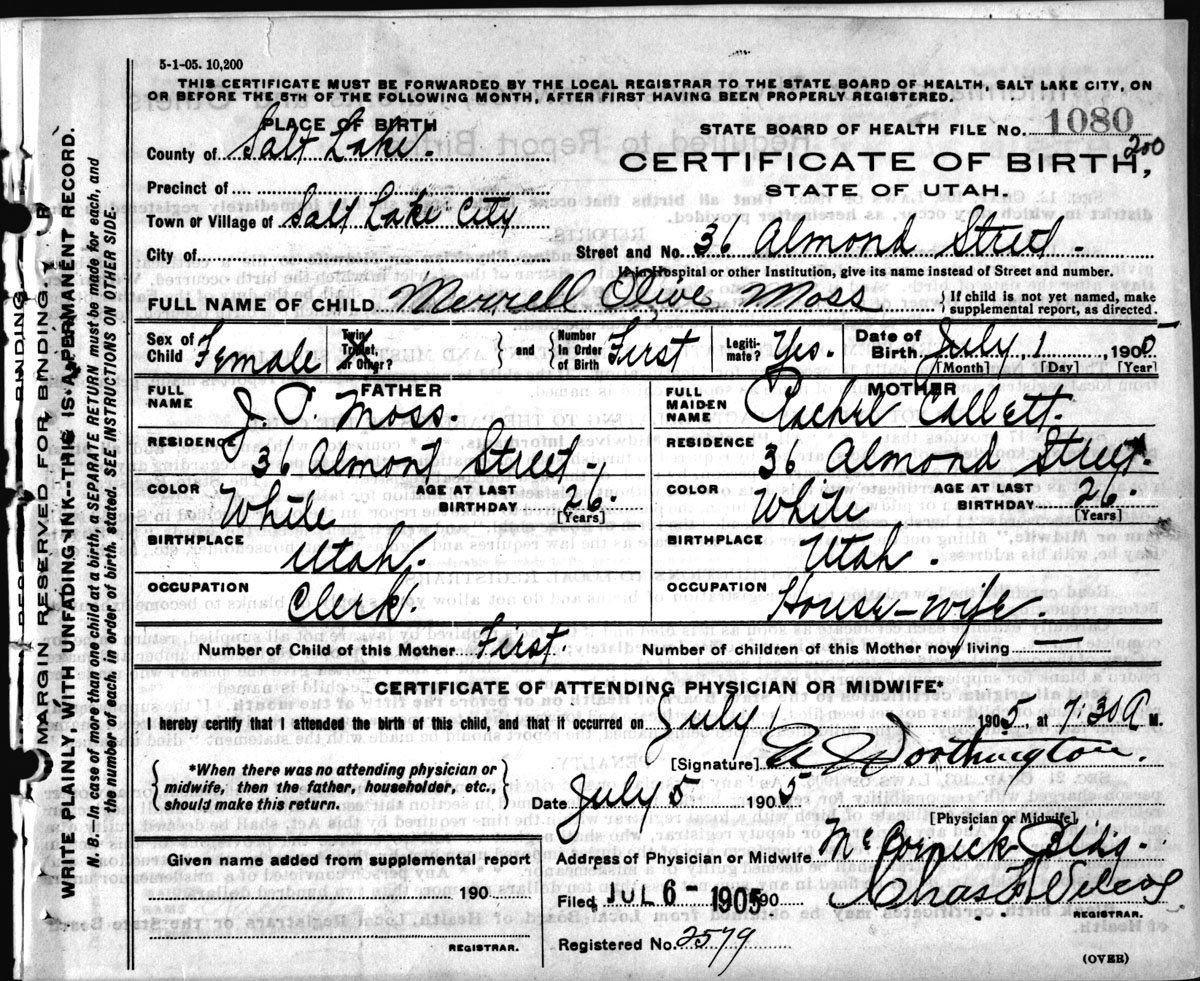 5-1-05. 10,200
THIS CERTIFICATE MUST BE FORWARDED BY THE LOCAL REGISTRAR TO THE STATE BOARD OF HEALTH, SALT LAKE CITY, ON
OR BEFORE THE 5TH OF THE FOLLOWING MONTH, AFTER FIRST HAVING BEEN PROPERLY REGISTERED.
PLACE OF BIRTH
STATE BOARD OF HEALTH FILE No. 1080
200
County of Salt Lake.
CERTIFICATE OF BIRTH,
Precinct of
STATE OF UTAH.
Town or Village of Salt Lake City
City of
Street and No. 36 Almond Street.
If in Hospital or other Institution, give its name instead of Street and number.
FULL NAME OF CHILD Merrell Olive Moss
{ If child is not yet named, make supplemental report, as directed.
Sex of Child Female
Twin, Triplet, or Other? } and { Number in Order of Birth First
Legitimate? Yes.
Date of Birth July 1, 1905
[Month] [Day] [Year]
FATHER
FULL NAME J. T. Moss.
RESIDENCE 36 Almont Street
COLOR White AGE AT LAST BIRTHDAY 26
[Years]
BIRTHPLACE Utah.
OCCUPATION Clerk.
MOTHER
FULL MAIDEN NAME Rachel Callett.
RESIDENCE 36 Almond Street.
COLOR White AGE AT LAST BIRTHDAY 26.
[Years]
BIRTHPLACE Utah.
OCCUPATION House-wife.
Number of Child of this Mother First
Number of children of this Mother now living —
CERTIFICATE OF ATTENDING PHYSICIAN OR MIDWIFE*
I hereby certify that I attended the birth of this child, and that it occurred on July 1 1905, at 7:30 A M.
[Signature] Worthington.
{ *When there was no attending physician or
midwife, then the father, householder, etc.,
should make this return. }
Date July 5 1905
[Physician or Midwife]
Address of Physician or Midwife McCornick Bldg.
Given name added from supplemental report
190
REGISTRAR.
Filed JUL 6- 1905 190
Chas
REGISTRAR.
Registered No. 2579
(OVER)
MARGIN RESERVED FOR BINDING
WRITE PLAINLY, WITH UNFADING INK--THIS IS A PERMANENT RECORD.
N. B.—In case of more than one child at a birth, a SEPARATE RETURN must be made for each, and
the number of each, in order of birth, stated. SEE INSTRUCTIONS ON OTHER SIDE.